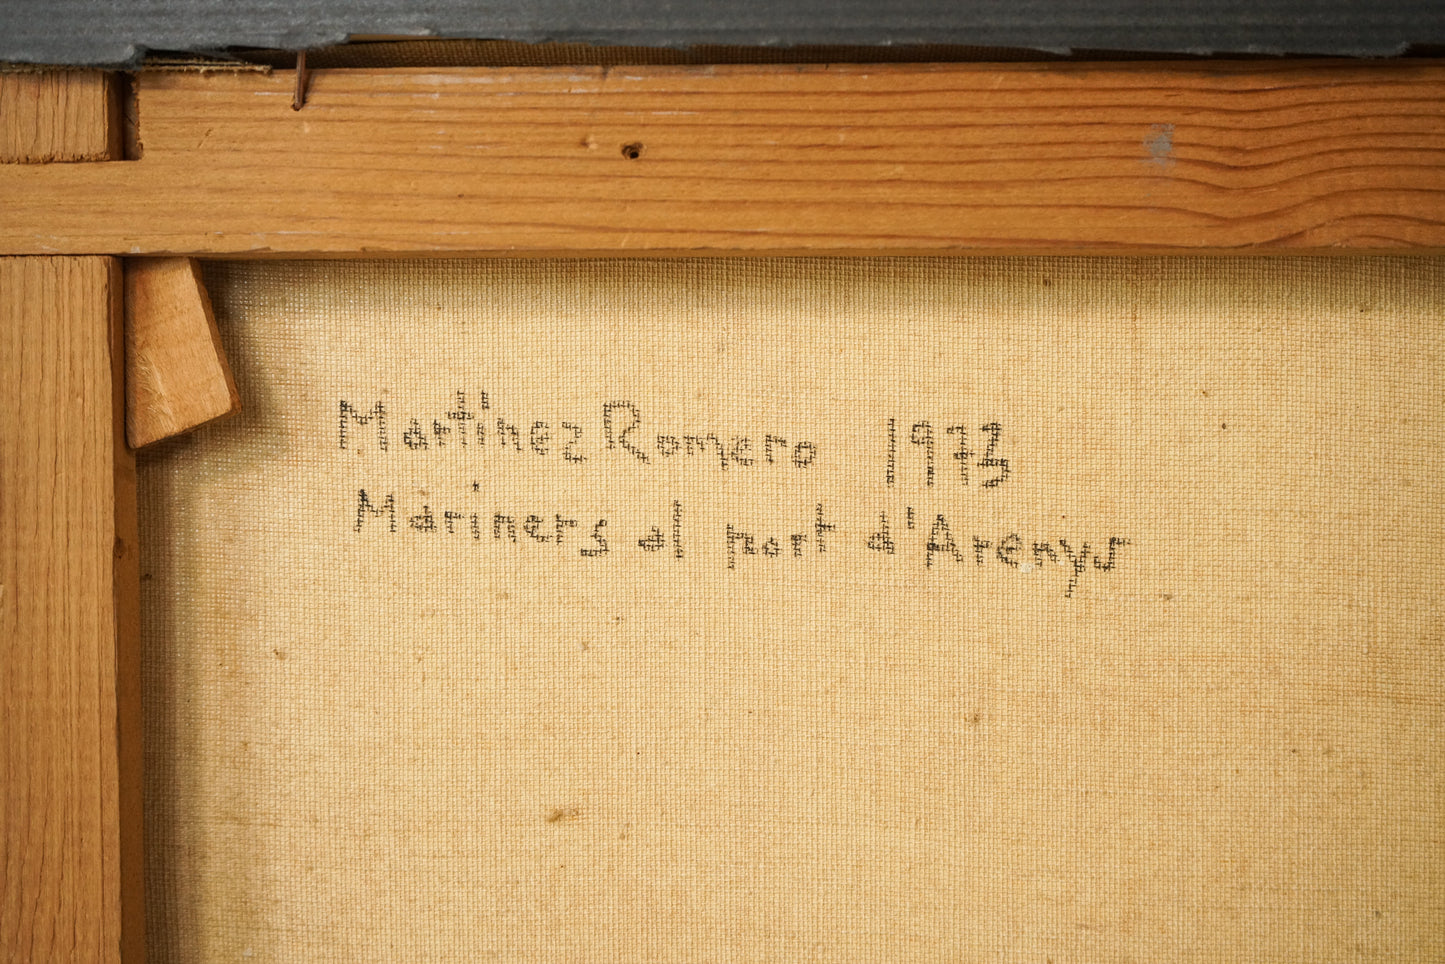 Martinez Romero 1973
Mariners al port d'Arenys